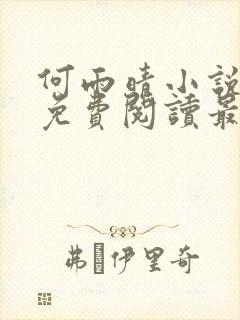 何雨晴小說
免費閱讀最
弗 伊里奇